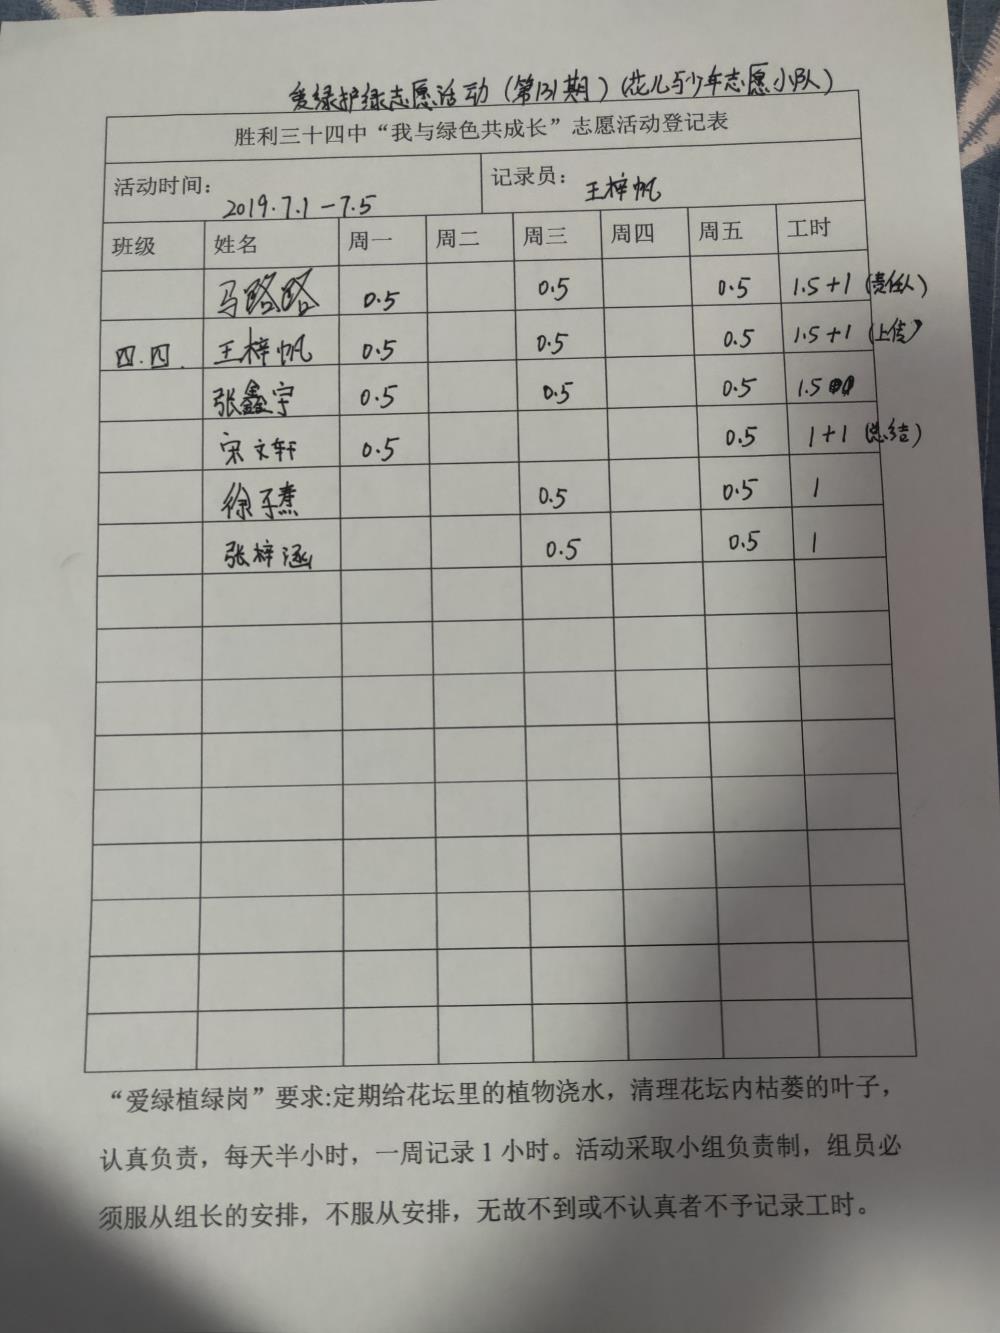 爱绿护绿志愿活动（第131期）（花儿与少年志愿小队）
胜利三十四中“我与绿色共成长”志愿活动登记表
活动时间： 2019.7.1-7.5 记录员： 王梓帆
班级 姓名 周一 周二 周三 周四 周五 工时
马路路 0.5 0.5 0.5 1.5+1（责任人）
四.四. 王梓帆 0.5 0.5 0.5 1.5+1（上传）
张鑫宇 0.5 0.5 0.5 1.5
宋文轩 0.5 0.5 1+1（总结）
徐子熹 0.5 0.5 1
张梓涵 0.5 0.5 1
“爱绿植绿岗”要求:定期给花坛里的植物浇水，清理花坛内枯萎的叶子，
认真负责，每天半小时，一周记录1小时。活动采取小组负责制，组员必
须服从组长的安排，不服从安排，无故不到或不认真者不予记录工时。